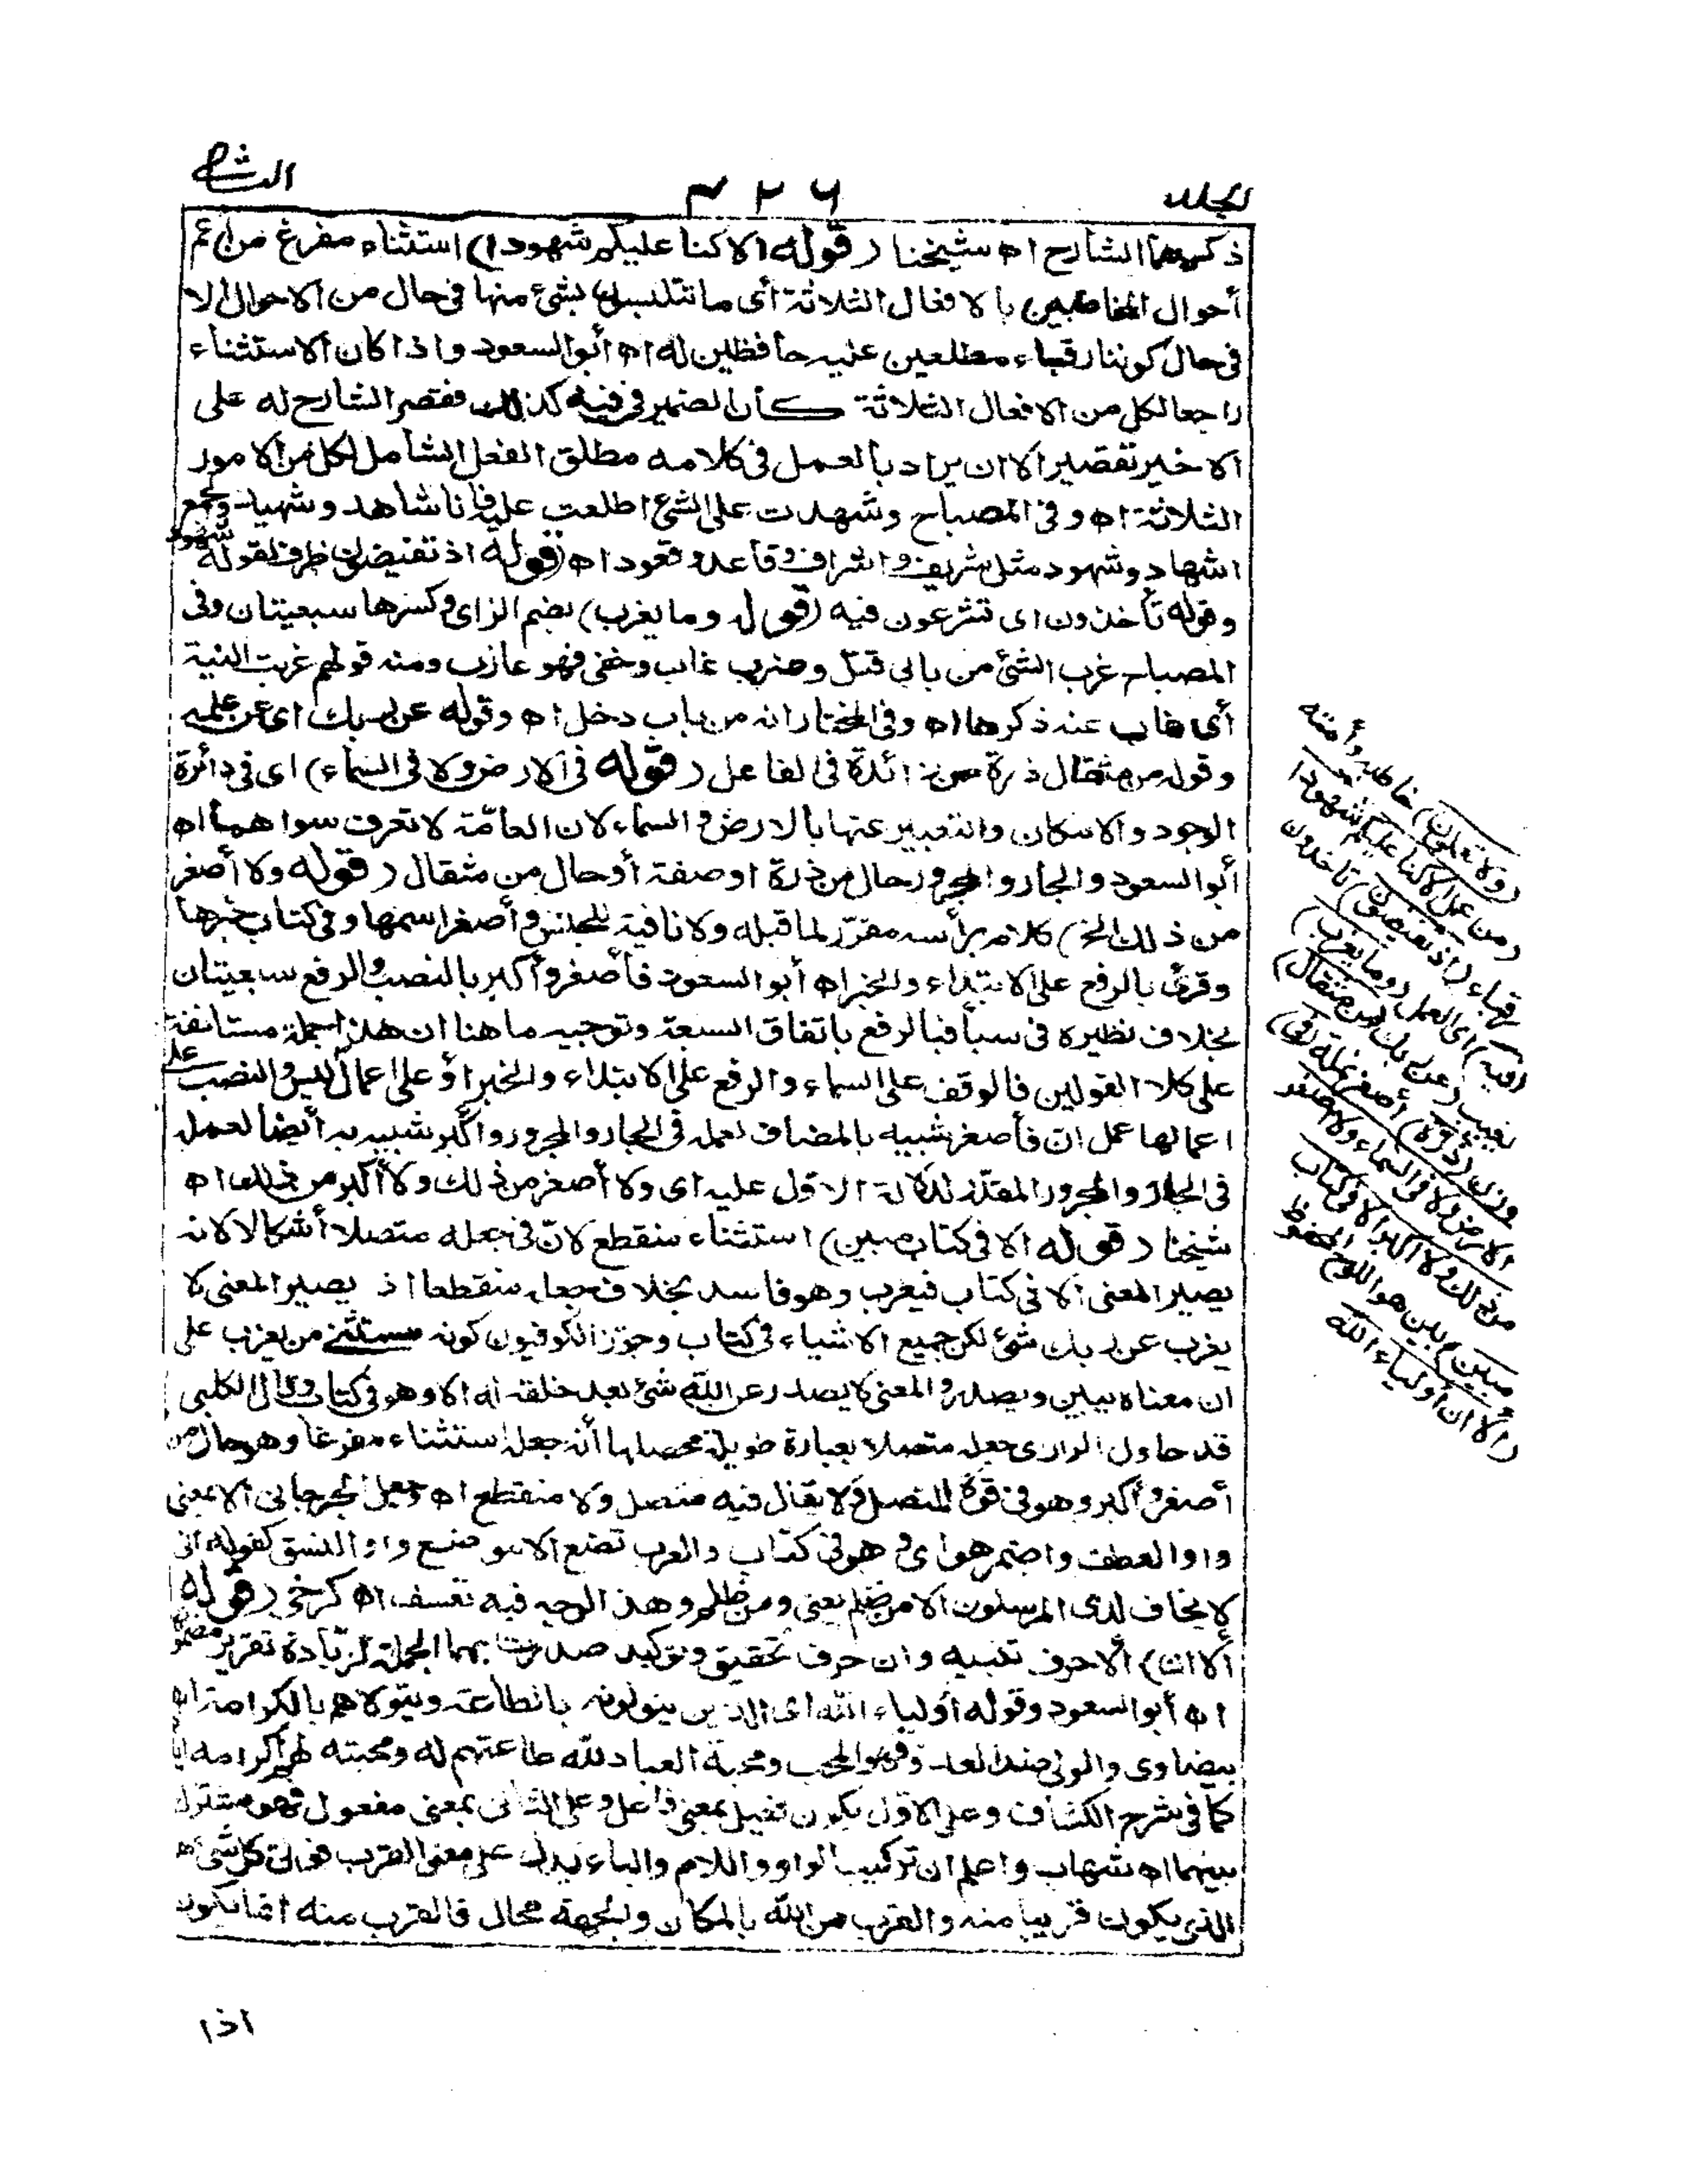 المجلد
٣٢٦
الثانى
ذكرهما الشارح اه شيخنا (قوله الا كنا عليكم شهودا) استثناء مفرغ من اعم
أحوال المخاطبين بالافعال الثلاثة أى ما تتلبسون بشئ منها فى حال من الاحوال الا
فى حال كوننا رقباء مطلعين عليه حافظين له اه أبو السعود واذا كان الاستثناء
راجعا لكل من الافعال الثلاثة كان الضمير فى فيه كذلك فقصر الشارح له على
الاخير تقصير الا ان يراد بالعمل فى كلامه مطلق الفعل الشامل لكل من الامور
الثلاثة اه وفى المصباح وشهدت على الشئ اطلعت عليه فانا شاهد وشهيد وجمع
اشهاد وشهود مثل شريف واشراف وقاعد وقعود اه (قوله اذ تفيضون) ظرف لقوله شهودا
وقوله تأخذون اى تشرعون فيه (قوله وما يعزب) بضم الزاى وكسرها سبعيتان وفى
المصباح عزب الشئ من بابى قتل وضرب غاب وخفى فهو عازب ومنه قولهم عزبت النية
أى غاب عنه ذكرها اه وفى المختار انه من باب دخل اه وقوله عن ربك اى عن علمه
وقوله من مثقال ذرة من زائدة فى الفاعل (قوله فى الارض ولا فى السماء) اى فى دائرة
الوجود والامكان والتعبير عنها بالارض والسماء لان العامّة لا تعرف سواهما اه
أبو السعود والجار والمجرور حال من ذرة او صفة أو حال من مثقال (قوله ولا أصغر
من ذلك الخ) كلام برأسه مقرّر لما قبله ولا نافية للجنس وأصغر اسمها وفى كتاب خبرها
وقرئ بالرفع على الابتداء والخبر اه أبو السعود فأصغر وأكبر بالنصب والرفع سبعيتان
بخلاف نظيره فى سبأ فبالرفع باتفاق السبعة وتوجيه ما هنا ان هذه الجملة مستانفة
على كلا القولين فالوقف على السماء والرفع على الابتداء والخبر او على اعمال ليس والنصب على
اعمالها عمل ان فأصغر شبيه بالمضاف لعمله فى الجار والمجرور واكبر شبيه به أيضا لعمله
فى الجار والمجرور المقدّر لدلالة الاول عليه اى ولا أصغر من ذلك ولا أكبر من ذلك اه
شيخنا (قوله الا فى كتاب مبين) استثناء منقطع لانّ فى جعله متصلا أشكالا لانه
يصير المعنى الا فى كتاب فيعزب وهو فاسد بخلاف جعله منقطعا اذ يصير المعنى لا
يعزب عن ربك شئ لكن جميع الاشياء فى كتاب وجوّز الكوفيون كونه مستثنى من يعزب على
ان معناه يبين ويصدر والمعنى لا يصدر عن الله شئ بعد خلقه له الا وهو فى كتاب وقال الكلبى
قد حاول الرازى جعله متصلا بعبارة طويلة محصلها أنه جعله استثناء مفرغا وهو حال من
أصغر وأكبر وهو فى قوّة المتصل ولا يقال فيه متصل ولا منقطع اه وجعل الجرجانى الا بمعنى
واو العطف واضمر هو اى وهو فى كتاب والعرب تضع الا موضع واو النسق كقوله انى
لا يخاف لدى المرسلون الا من ظلم يعنى ومن ظلم وهذا الوجه فيه تعسف اه كرخى (قوله
ألا ان) ألا حرف تنبيه وان حرف تحقيق وتوكيد صدرت بهما الجملة لزيادة تقرير مضمونها
اه أبو السعود وقوله أولياء الله اى الذين يتولونه بالطاعة ويتولاهم بالكرامة اه
بيضاوى والولى ضد العدو فهو المحب ومحبة العباد لله طاعتهم له ومحبته لهم اكرامه اياهم
كما فى شرح الكشاف وعلى الاوّل يكون فعيل بمعنى فاعل وعلى الثانى بمعنى مفعول فهو مشترك
بينهما اه شهاب واعلم ان تركيب الواو واللام والياء يدل على معنى القرب فولى كل شئ هو
الذى يكون قريبا منه والقرب من الله بالمكان والجهة محال فالقرب منه انما يكون
(ولا تعملون) خاطبه وأمته
(من عمل الا كنا عليكم شهودا)
رقباء (اذ تفيضون) تأخذون
(فيه) اى العمل (وما يعزب)
يغيب (عن ربك من مثقال)
وزن (ذرة) أصغر نملة (فى
الارض ولا فى السماء ولا أصغر
من ذلك ولا أكبر الا فى كتاب
مبين) بين هو اللوح المحفوظ
(ألا ان أولياء الله
اذا